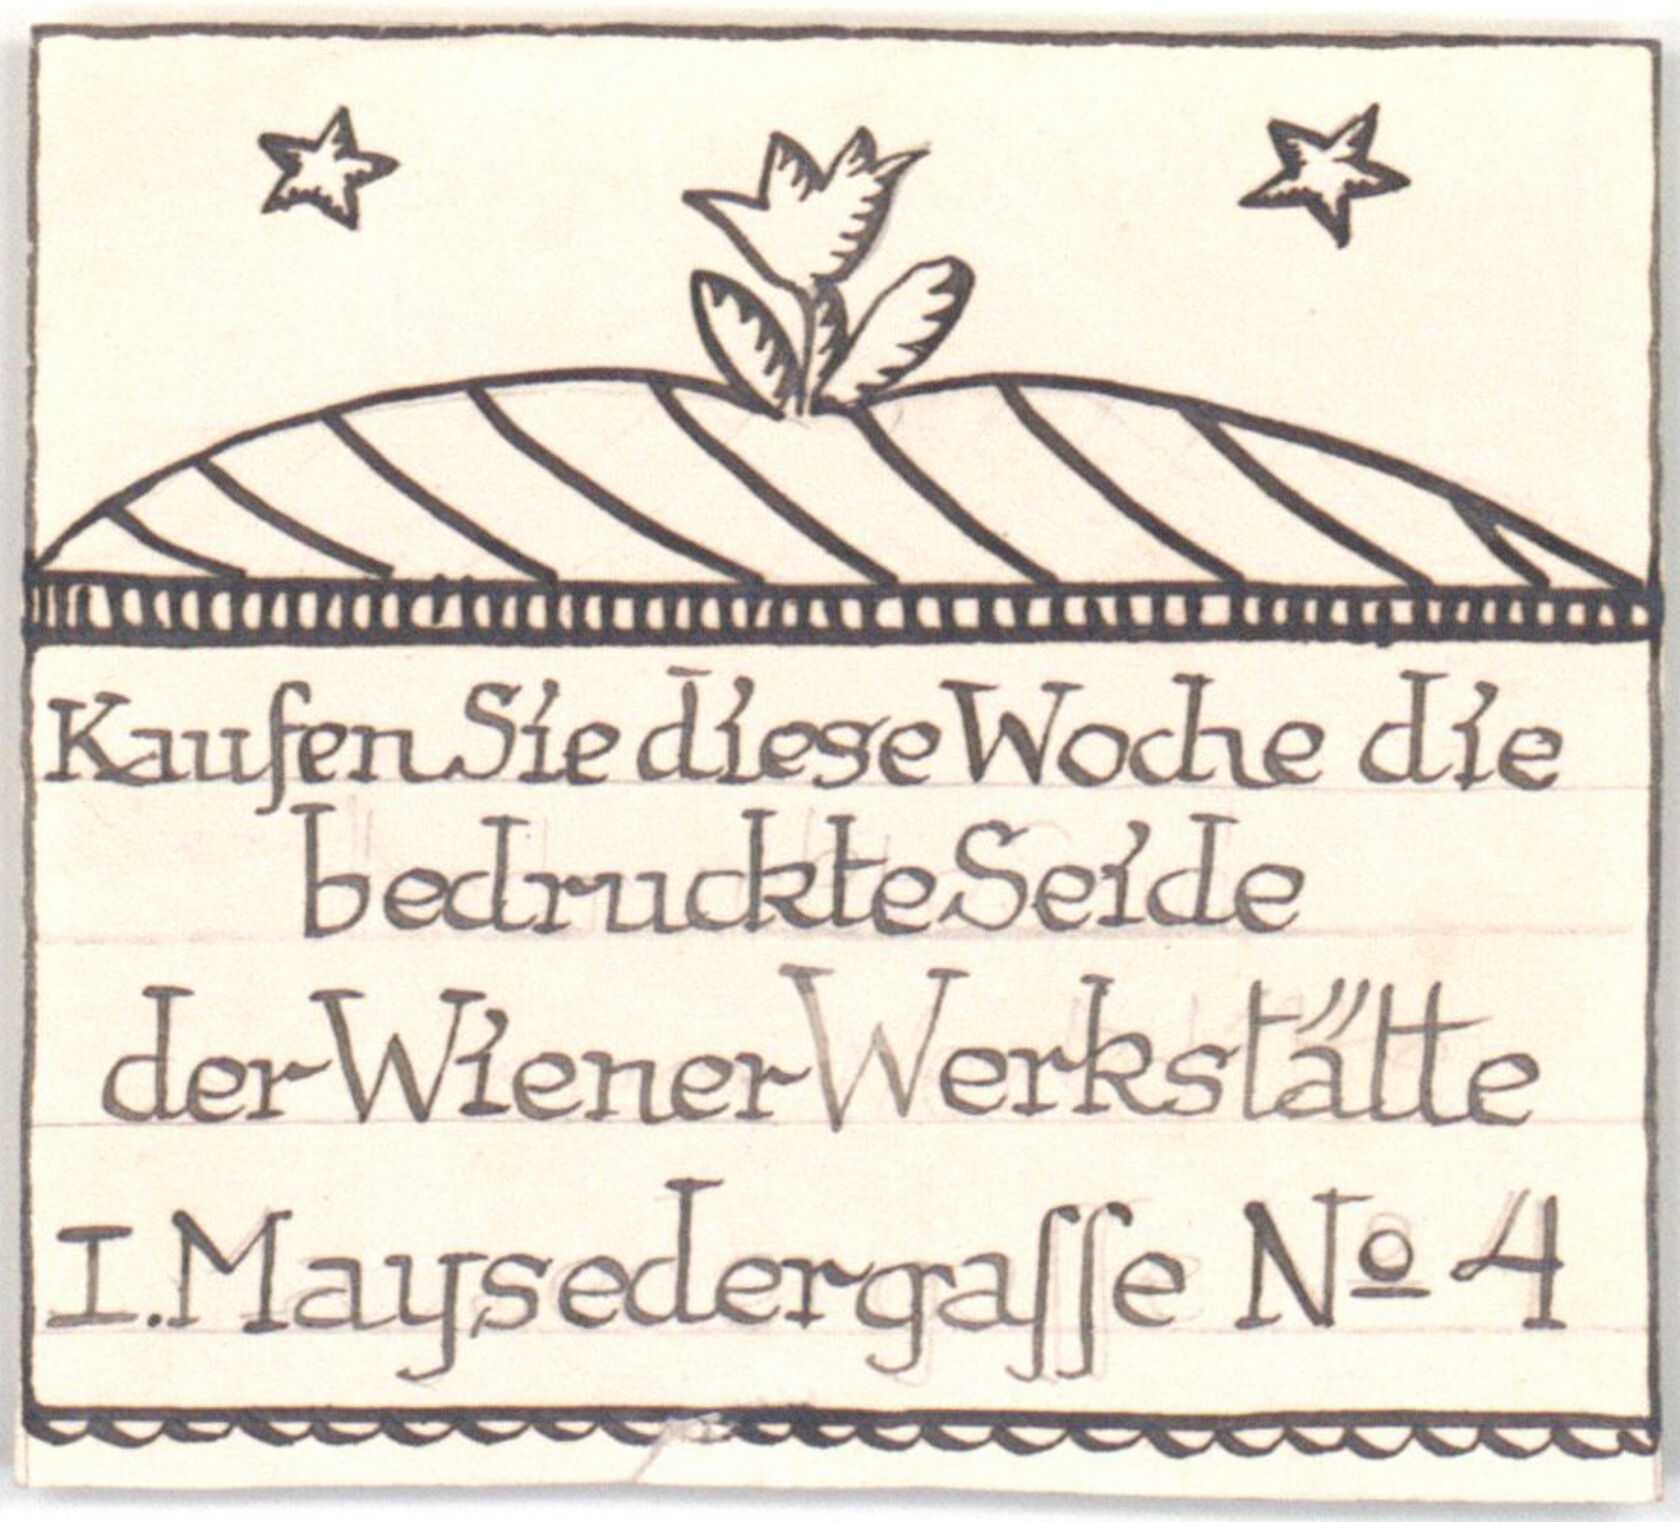 Kaufen Sie diese Woche die
bedruckte Seide
der Wiener Werkstätte
I. Maysedergaſſe Nº 4